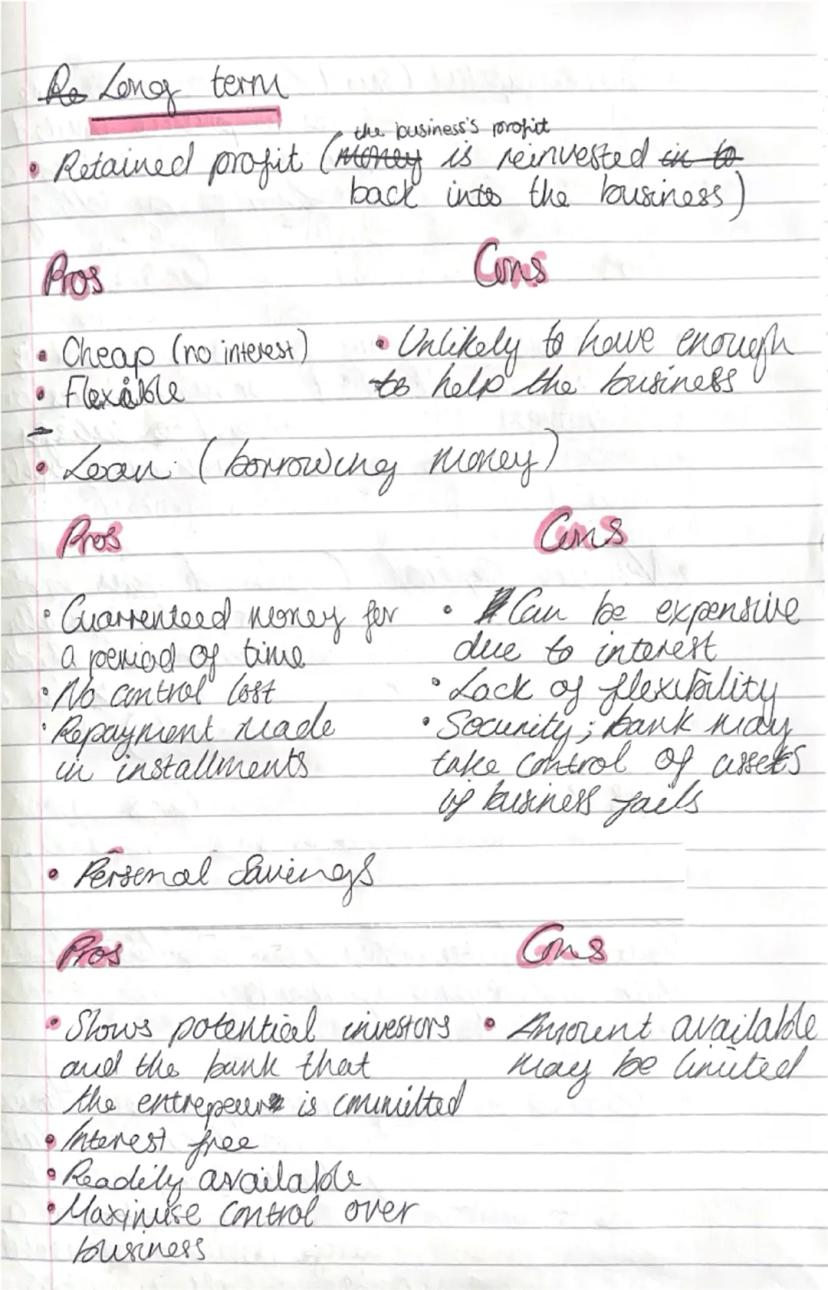 Re Long term
the business's profit
• Retained profit (money is reinvested in to
back into the business)
Pros Cons
• Cheap (no interest) • Unlikely to have enough
• Flexible to help the business
• Loan (borrowing money)
Pros Cons
• Guarrenteed money for • Can be expensive
a period of time due to interest
• No control lost • Lack of flexibility
• Repayment made • Security; bank may
in installments take control of assets
if business fails
• Personal Savings
Pros Cons
• Shows potential investors • Amount available
and the bank that may be limited
the entrepeur is committed
• Interest free
• Readily available
• Maximise control over
business